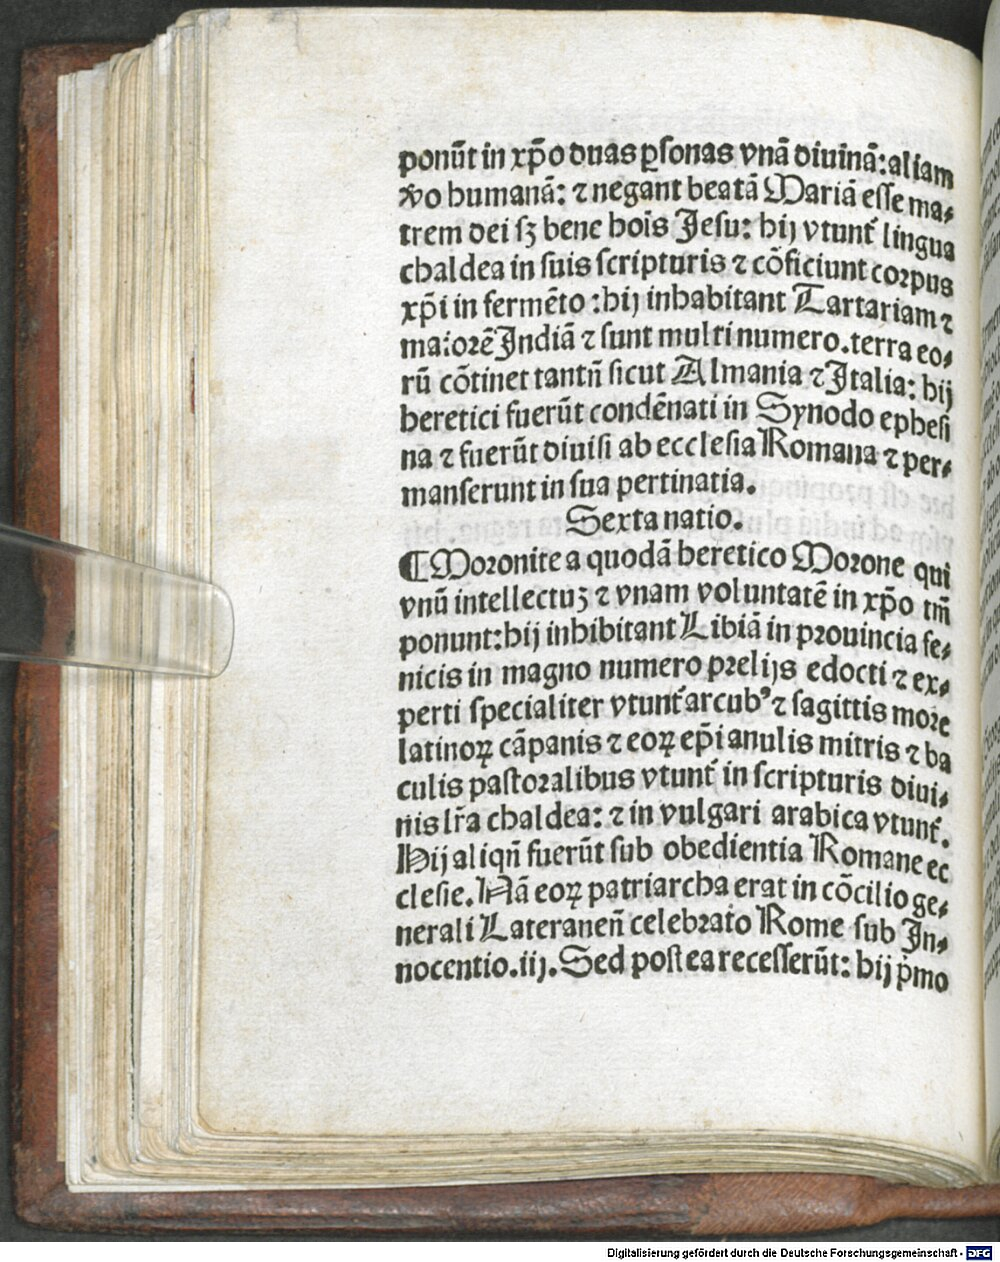 ponūt in xp̄o duas ꝑsonas vnā diuinā: aliam
v̄o humanā: ⁊ negant beatā Mariā esse ma⸗
trem dei sꝫ bene hoīs Jesu: hij vtunt᷑ lingua
chaldea in suis scripturis ⁊ cōficiunt corpus
xp̄i in fermēto : hij inhabitant Tartariam ⁊
maiorē Jndiā ⁊ sunt multi numero. terra eo⸗
rū cōtinet tantū sicut Almania ⁊ Jtalia: hij
heretici fuerūt condēnati in Synodo ephesi
na ⁊ fuerūt diuisi ab ecclesia Romana ⁊ per⸗
manserunt in sua pertinatia.
Sexta natio.
¶ Moronite a quodā heretico Morone qui
vnū intellectuꝫ ⁊ vnam voluntatē in xp̄o tm̄
ponunt: hij inhibitant Libiā in prouincia fe⸗
nicis in magno numero prelijs edocti ⁊ ex⸗
perti specialiter vtunt᷑ arcubꝰ ⁊ sagittis more
latinoꝝ cāpanis ⁊ eoꝝ ep̄i anulis mitris ⁊ ba
culis pastoralibus vtunt᷑ in scripturis diui⸗
nis lr̄a chaldea: ⁊ in vulgari arabica vtunt᷑.
Hij aliqn̄ fuerūt sub obedientia Romane ec
clesie. Nā eoꝝ patriarcha erat in cōcilio ge⸗
nerali Lateraneñ celebrato Rome sub Jn⸗
nocentio .iij. Sed postea recesserūt: hij p̄mo
Digitalisierung gefördert durch die Deutsche Forschungsgemeinschaft - DFG